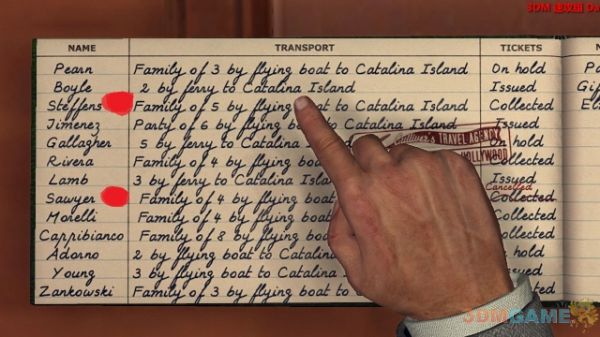 3DM
NAME TRANSPORT TICKETS
Pearn Family of 3 by flying boat to Catalina Island On hold
Boyle 2 by ferry to Catalina Island Issued
Steffens Family of 5 by flying boat to Catalina Island Collected
Jimenez Party of 6 by flying boat to Catalina Island Issued
Gallagher 5 by ferry to Catalina hold
Rivera Family of 4 by flying Collected
Lamb 3 by ferry to Catalina Issued
Cancelled
Sawyer Family of 4 by flying boat Collected
Morelli Family of 4 by flying boat Collected
Cappibianco Family of 8 by flying boat Collected
Adorno 2 by flying boat to Catalina hold
Young 3 by flying boat to Catalina Issued
Zankowski Family of 3 by flying boat to Catalina Island Collected
TRAVEL AGENCY
HOLLYWOOD
3DMGAME